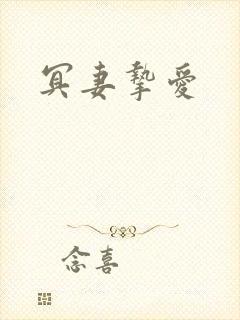 冥妻摯愛
念喜